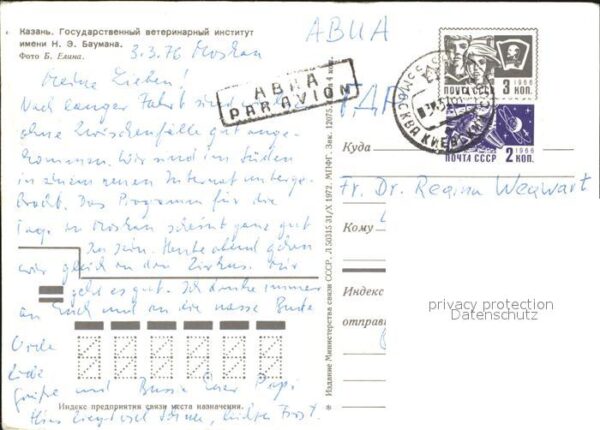 Казань. Государственный ветеринарный институт
имени Н. Э. Баумана.
Фото Б. Елина.
3.3.76 Moskau
Meine Lieben!
Nach langer Fahrt sind
ohne Zwischenfälle gut ange-
kommen. Wir sind im Süden
in einem neuen Internat unterge-
bracht. Das Programm für die
Tage in Moskau scheint ganz gut
zu sein. Heute abend gehen
wir gleich in den Zirkus. Mir
geht es gut. Ich denke immer
an Euch und an die
Grüße und Bussi Euer Papi
АВИА
PAR AVION
АВИА
ГДР
ПОЧТА СССР 3 КОП.
1966
ПОЧТА СССР 2 КОП.
1966
МОСКВА
Куда
Fr. Dr. Regina Wegwart
Кому
Индекс
отправи
privacy protection
Datenschutz
Издание Министерства связи СССР. Л 50315 31/X 1972. МПФГ. Зак. 12075. 4 коп.
Индекс предприятия связи места назначения.